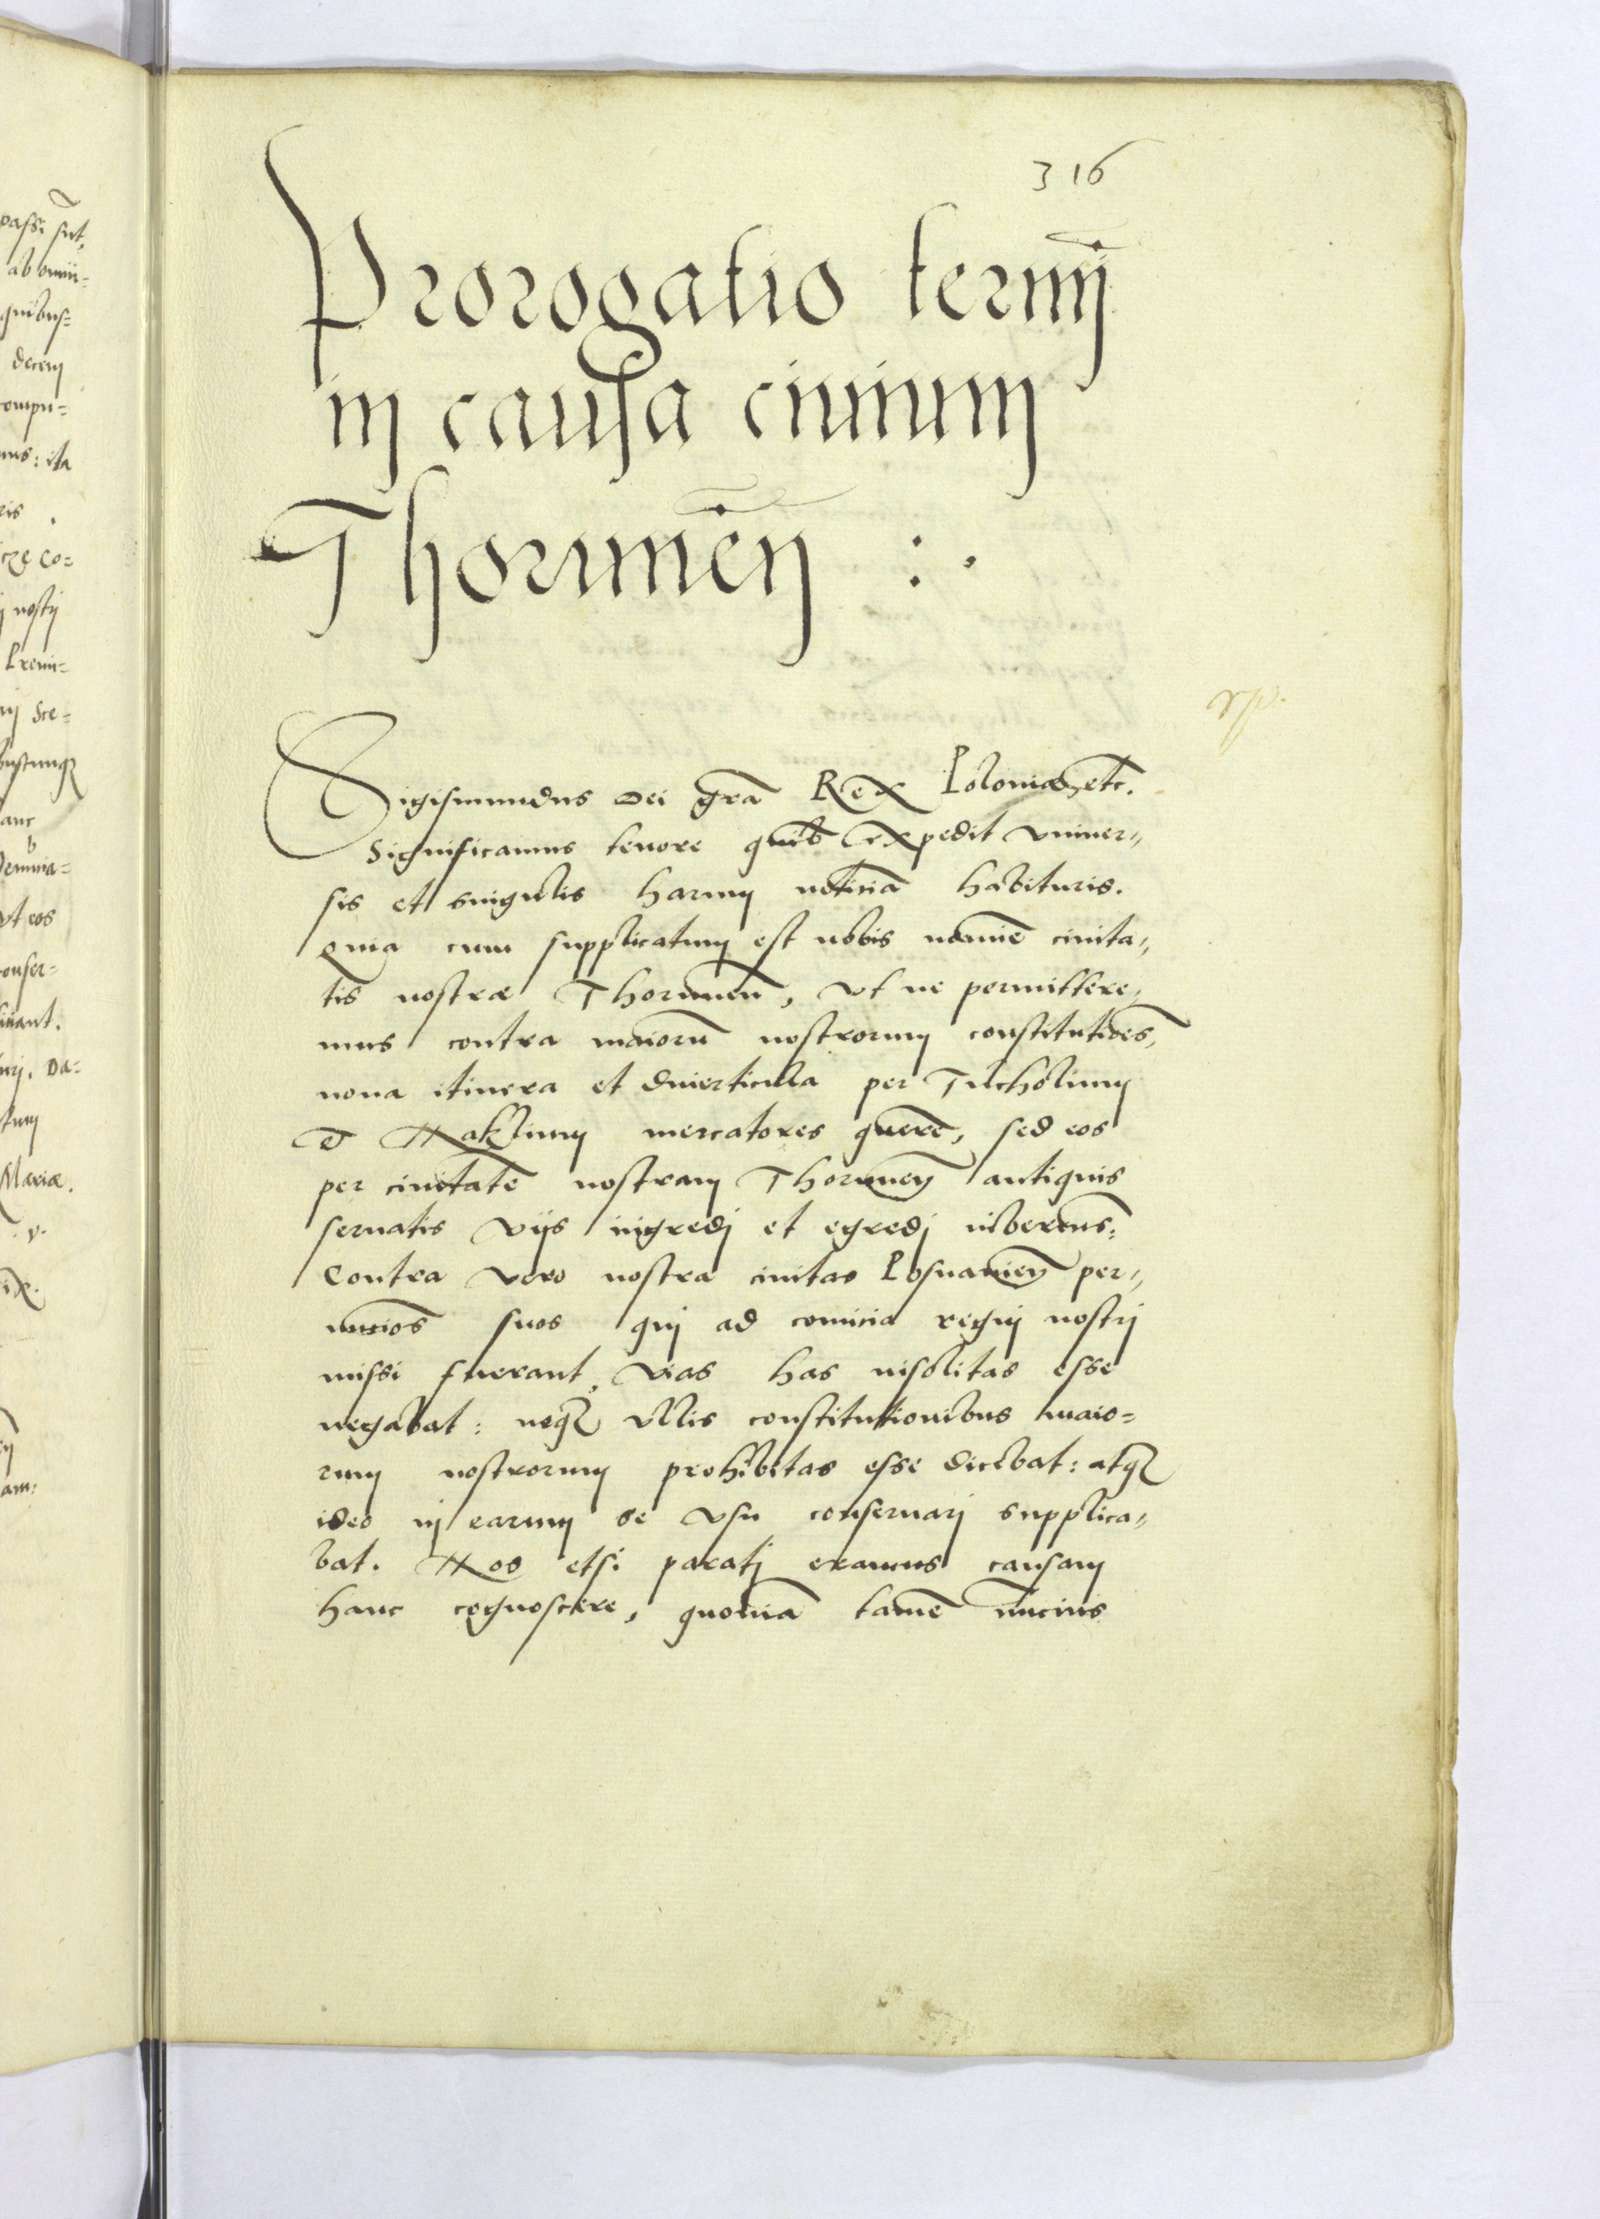 316
Prorogatio termĩj
in causa ciuium
Thorunen̄ :.
Sigismundus Dei grã Rex Poloniae etc.
Significamus tenore quib expedit vniuer„
sis et singulis harum noticiã habituris.
quia cum supplicatum est nobis nomiẽ ciuita„
tis nostrae Thorunen̄, vt ne permittere„
mus contra maiorũ nostrorum constitutiões,
noua itinera et diuerticula per Tucholium
Et Naklium mercatores querẽ, sed eos
per ciuitatẽ nostram Thorunen̄ antiquis
seruatis vijs ingredj et egredj iuberems̃:
Contra vero nostra ciuitas Posnanien̄ per„
nuncios suos qui ad comicia regnj nostrj
missi fuerant, vias has insolitas esse
negabat: neq3 vllis constitutionibus maio=
rum nostrorum prohibitas esse dicebat: atq3
ideo in earum se vsu conseruarj supplica„
bat. Nos etsi paratj eramus causam
hanc cognoscere, quoniã tamẽ nuncius
passi sut,
ab omni=
quibus=
decem
compu=
mus: ita
ris
co=
nostrj
Premi=
Sce=
anc
vt eos
onser=
Da=
Mariae.